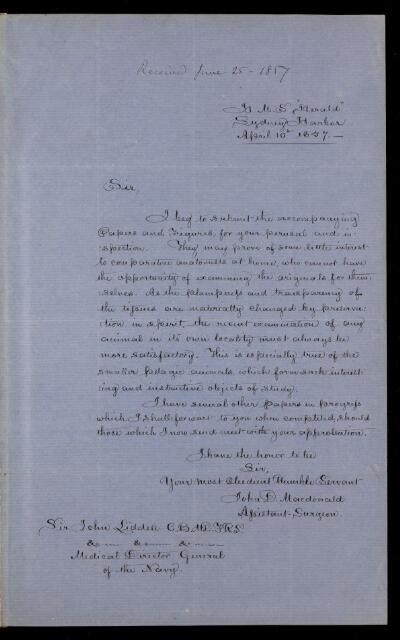 Received June 25 - 1857
H. M. S. "Herald"
Sydney Harbor
April 10th 1857. -
Sir,
I beg to submit the accompanying
Papers and Figures, for your perusal and in-
spection. They may prove of some little interest
to comparative anatomists at home, who cannot have
the opportunity of examining the originals for them
selves. As the plumpness and transparency of
the tissues are materially changed by preserva-
tion in spirit, the recent examination of any
animal in its own locality must always be
more satisfactory. This is especially true of the
smaller pelagic animals, which form such interest-
ing and instructive objects of study.
I have several other papers in progress
which I shall forward to you when completed, should
those which I now send meet with your approbation.
I have the honor to be
Sir,
Your most Obedient Humble Servant
John D. Macdonald
Assistant-Surgeon.
Sir John Liddell C.B. M.D. F.R.S.
&c— &c— &c—
Medical Director General
of the Navy.